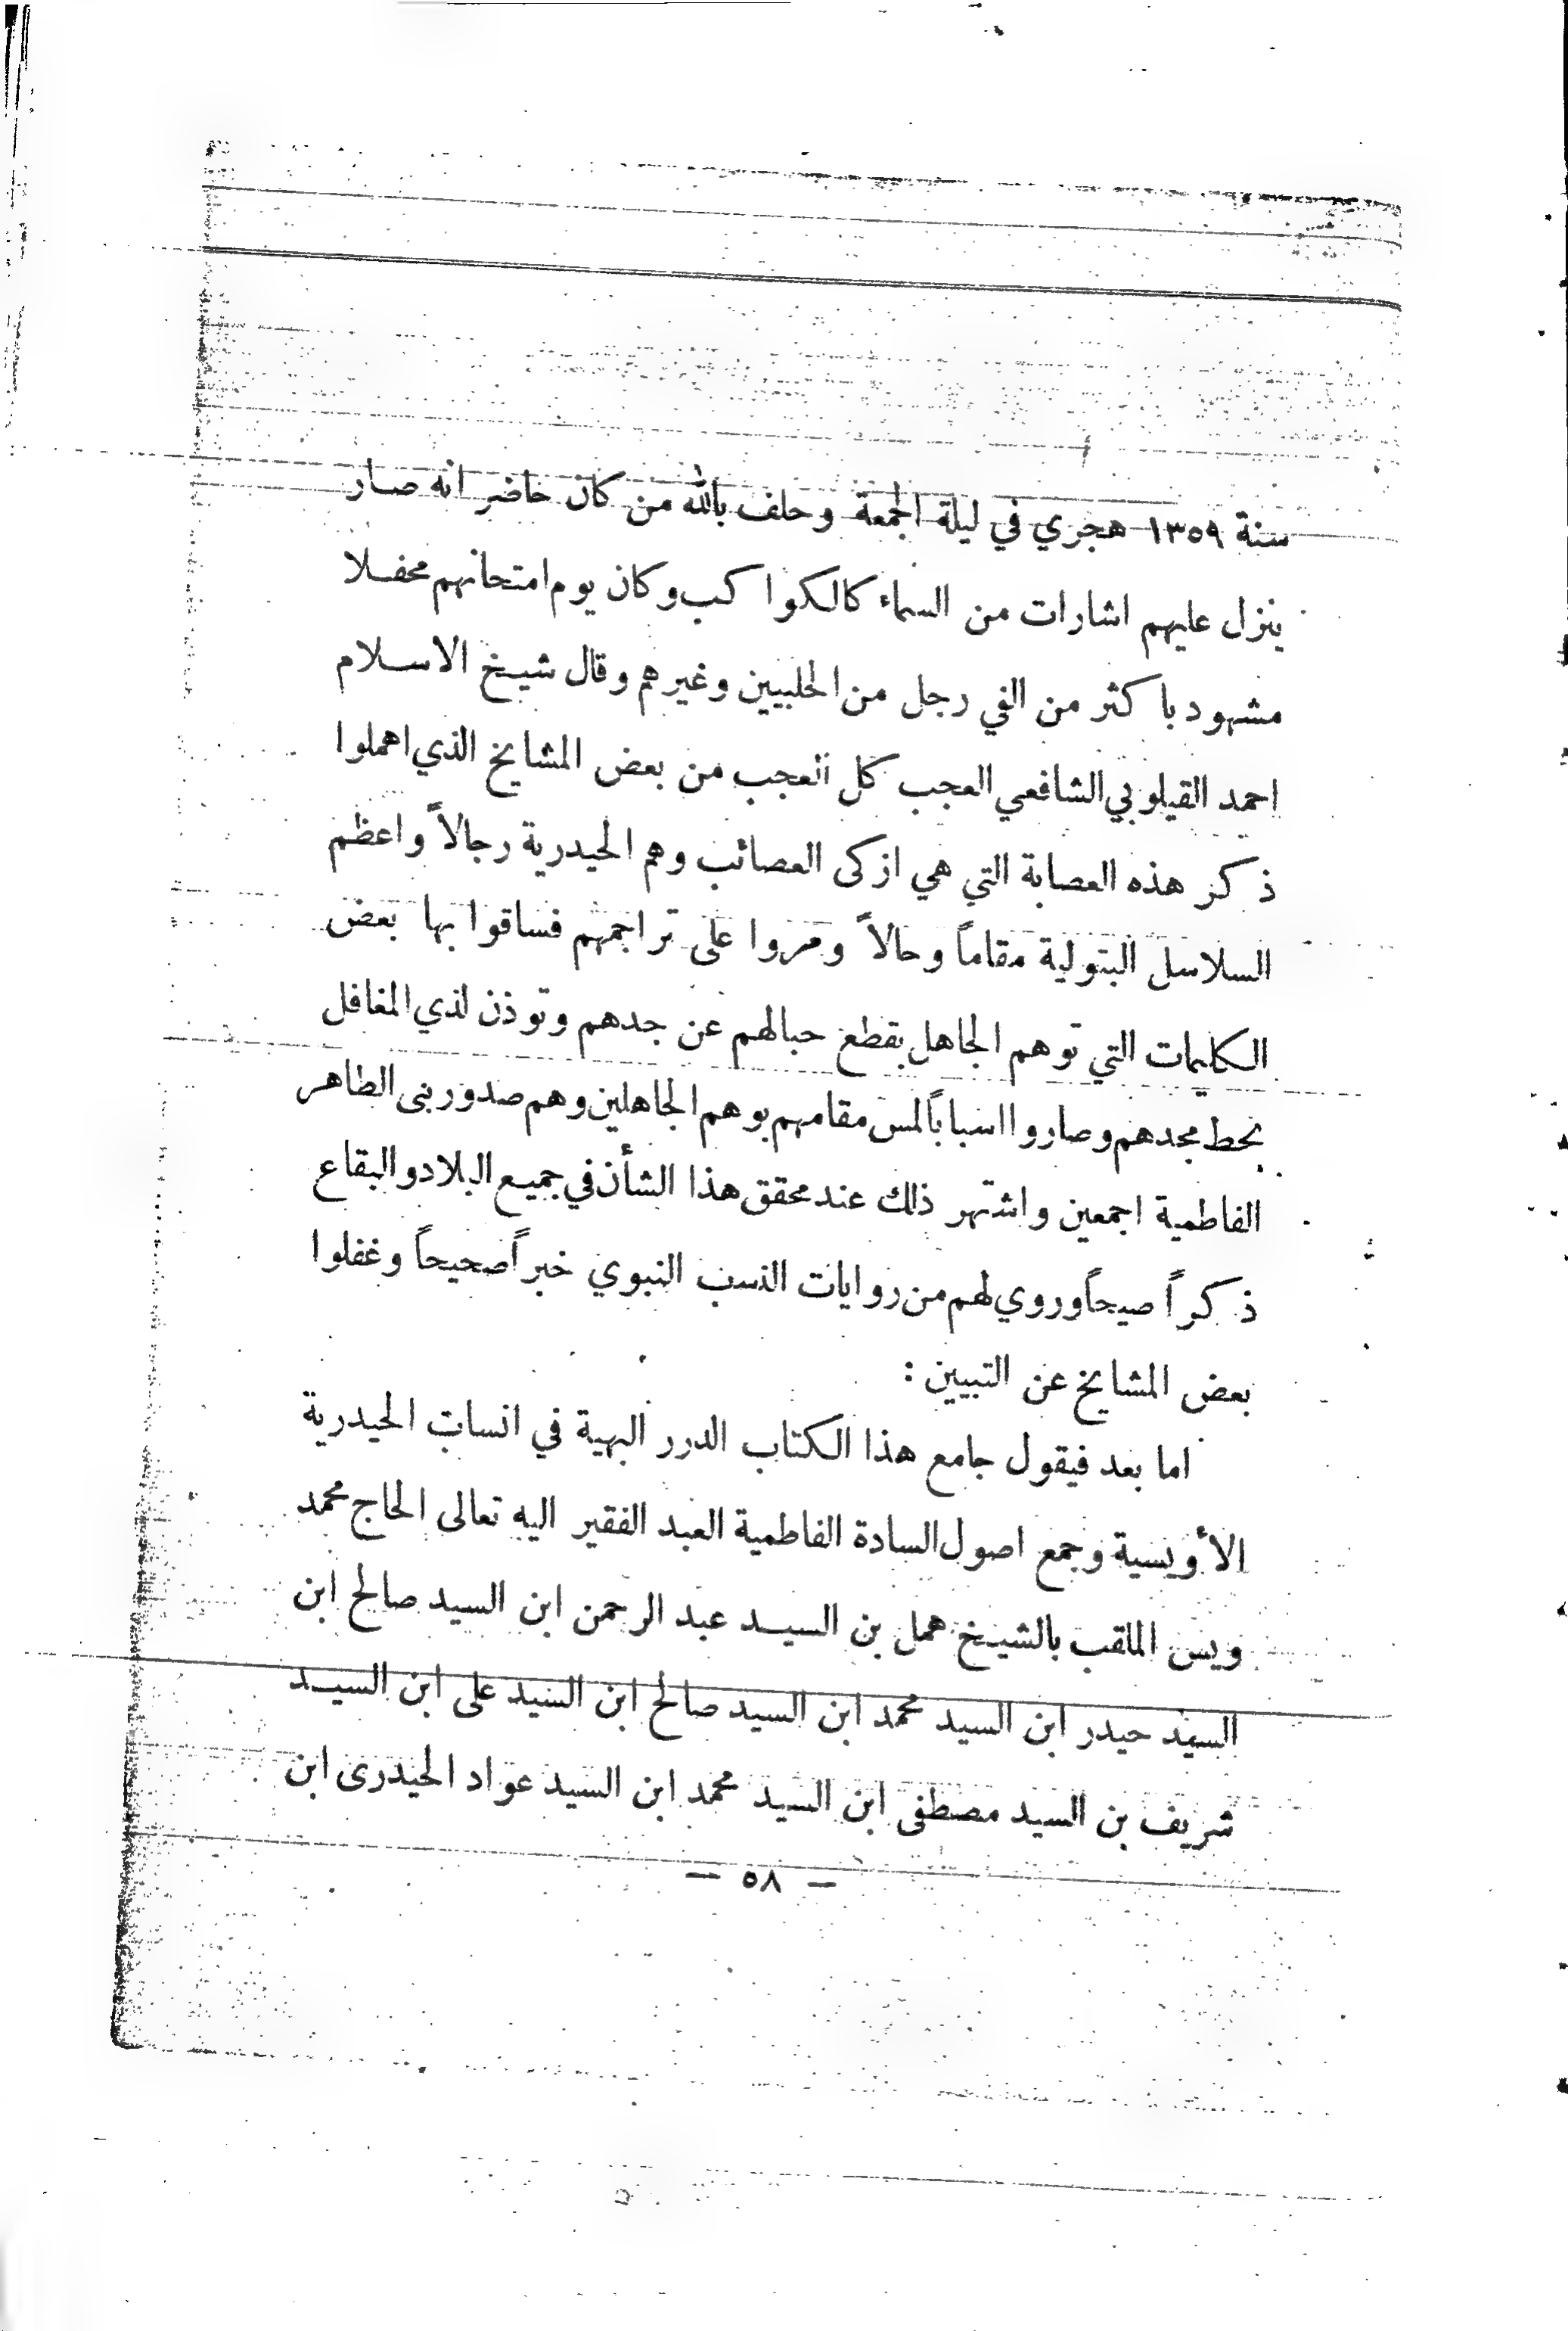 سنة ١٣٥٩ هجري في ليلة الجمعة وحلف بالله من كان حاضر انه صار
ينزل عليهم اشارات من السماء كالكواكب وكان يوم امتحانهم محفلا
مشهود باكثر من الفي رجل من الحلبيين وغيرهم وقال شيخ الاسلام
احمد القيلوبي الشافعي العجب كل العجب من بعض المشايخ الذي اهملوا
ذكر هذه العصابة التي هي ازكى العصائب وهم الحيدرية رجالاً واعظم
السلاسل البتولية مقاماً وحالاً ومروا على تراجمهم فساقوا بها بعض
الكليمات التي توهم الجاهل بقطع حبالهم عن جدهم وتوذن لذي المغافل
بحط مجدهم وصاروا اسباباً لمس مقامهم بوهم الجاهلين وهم صدور بنى الطاهر
الفاطمية اجمعين واشتهر ذلك عند محقق هذا الشأن في جميع البلاد والبقاع
ذكراً صيحاً وروي لهم من روايات النسب النبوي خبراً صحيحاً وغفلوا
بعض المشايخ عن التبيين :
اما بعد فيقول جامع هذا الكتاب الدرر البهية في انساب الحيدرية
الأويسية وجمع اصول السادة الفاطمية العبد الفقير اليه تعالى الحاج محمد
ويس الملقب بالشيخ همل بن السيد عبد الرحمن ابن السيد صالح ابن
السيد حيدر ابن السيد محمد ابن السيد صالح ابن السيد على ابن السيد
شريف بن السيد مصطفى ابن السيد محمد ابن السيد عواد الحيدرى ابن
— ٥٨ —